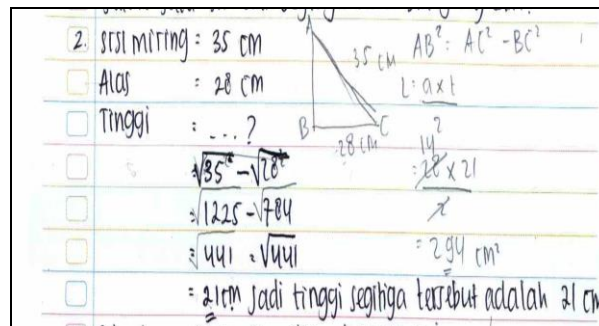 2. sisi miring = 35 cm
Alas = 28 cm
Tinggi = ...?
A
35 cm
B
C
28 cm
AB² = AC² - BC²
L = a x t
2
14
= 28 x 21
2
= 294 cm²
= √35² - √28²
= √1225 - √784
= √441 = √441
= 21 cm jadi tinggi segitiga tersebut adalah 21 cm